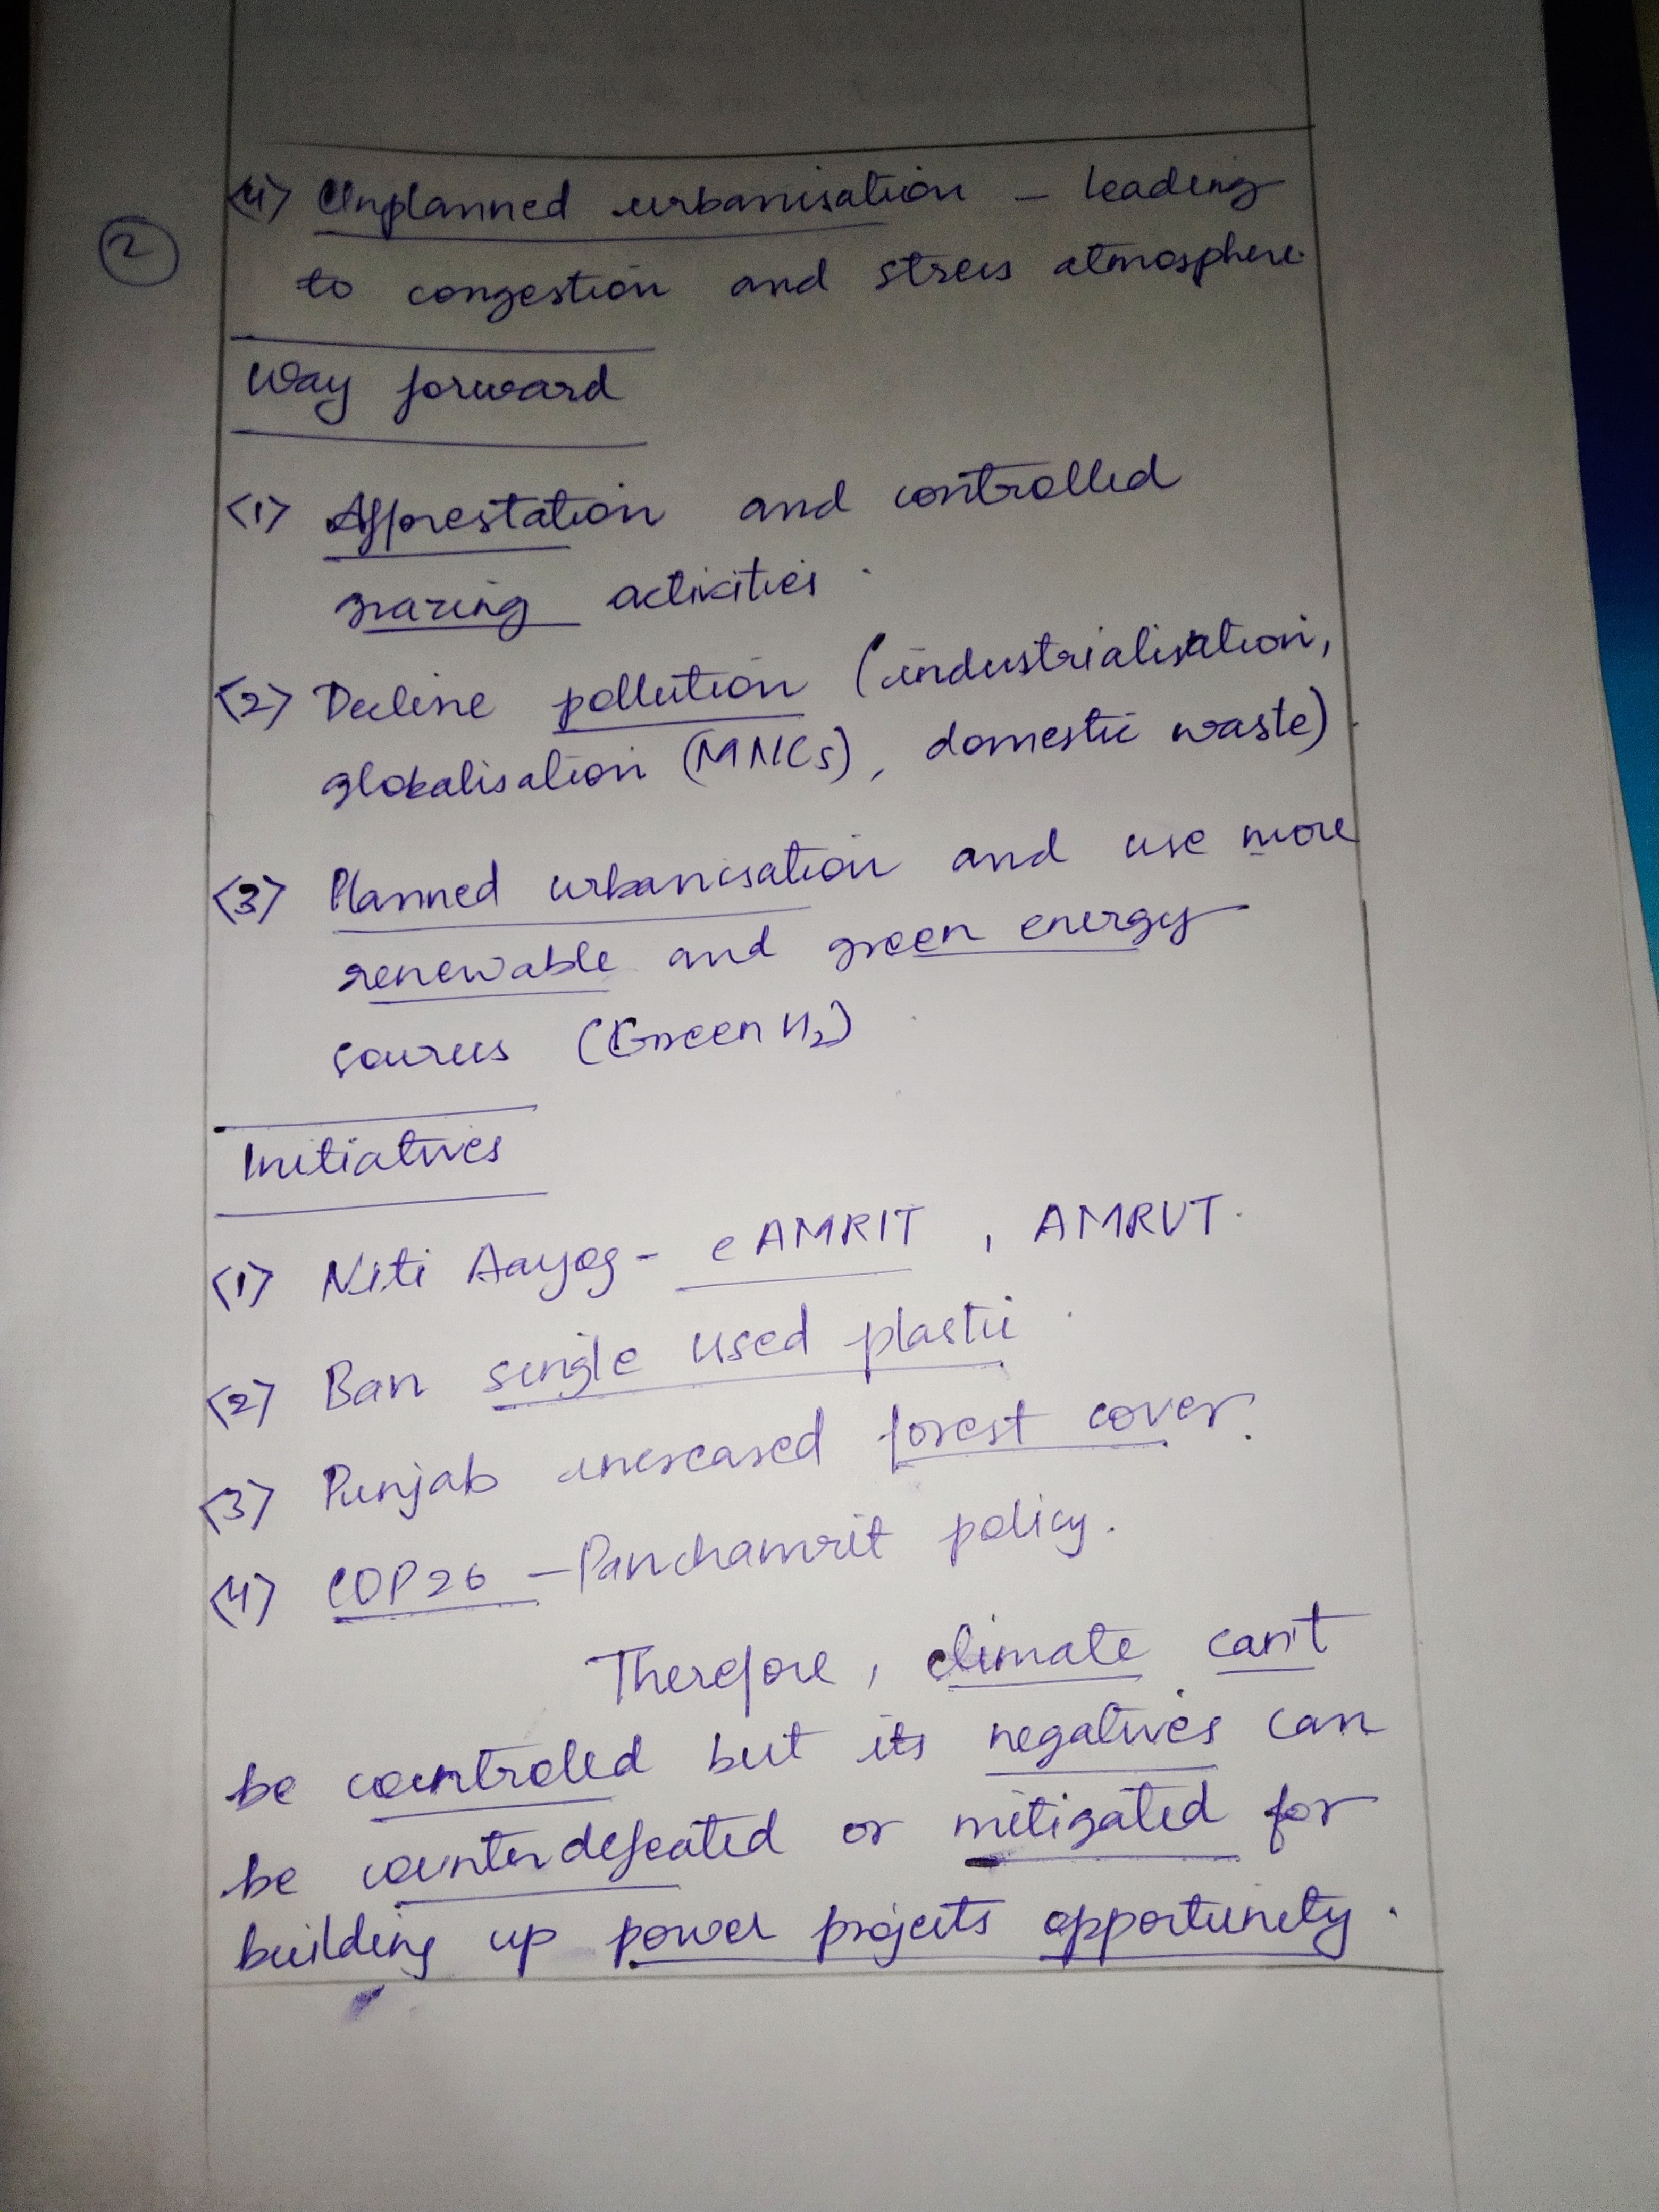 ②
<4> Unplanned urbanisation – leading
to congestion and stress atmosphere.
Way forward
<1> Afforestation and controlled
grazing activities.
<2> Decline pollution (industrialisation,
globalisation (MNCs), domestic waste).
<3> Planned urbanisation and use more
renewable and green energy
sources (Green H₂).
Initiatives
<1> Niti Aayog – eAMRIT, AMRUT.
<2> Ban single used plastic.
<3> Punjab increased forest cover.
<4> COP26 – Panchamrit policy.
Therefore, climate can't
be controlled but its negatives can
be counterdefeated or mitigated for
building up power projects opportunity.